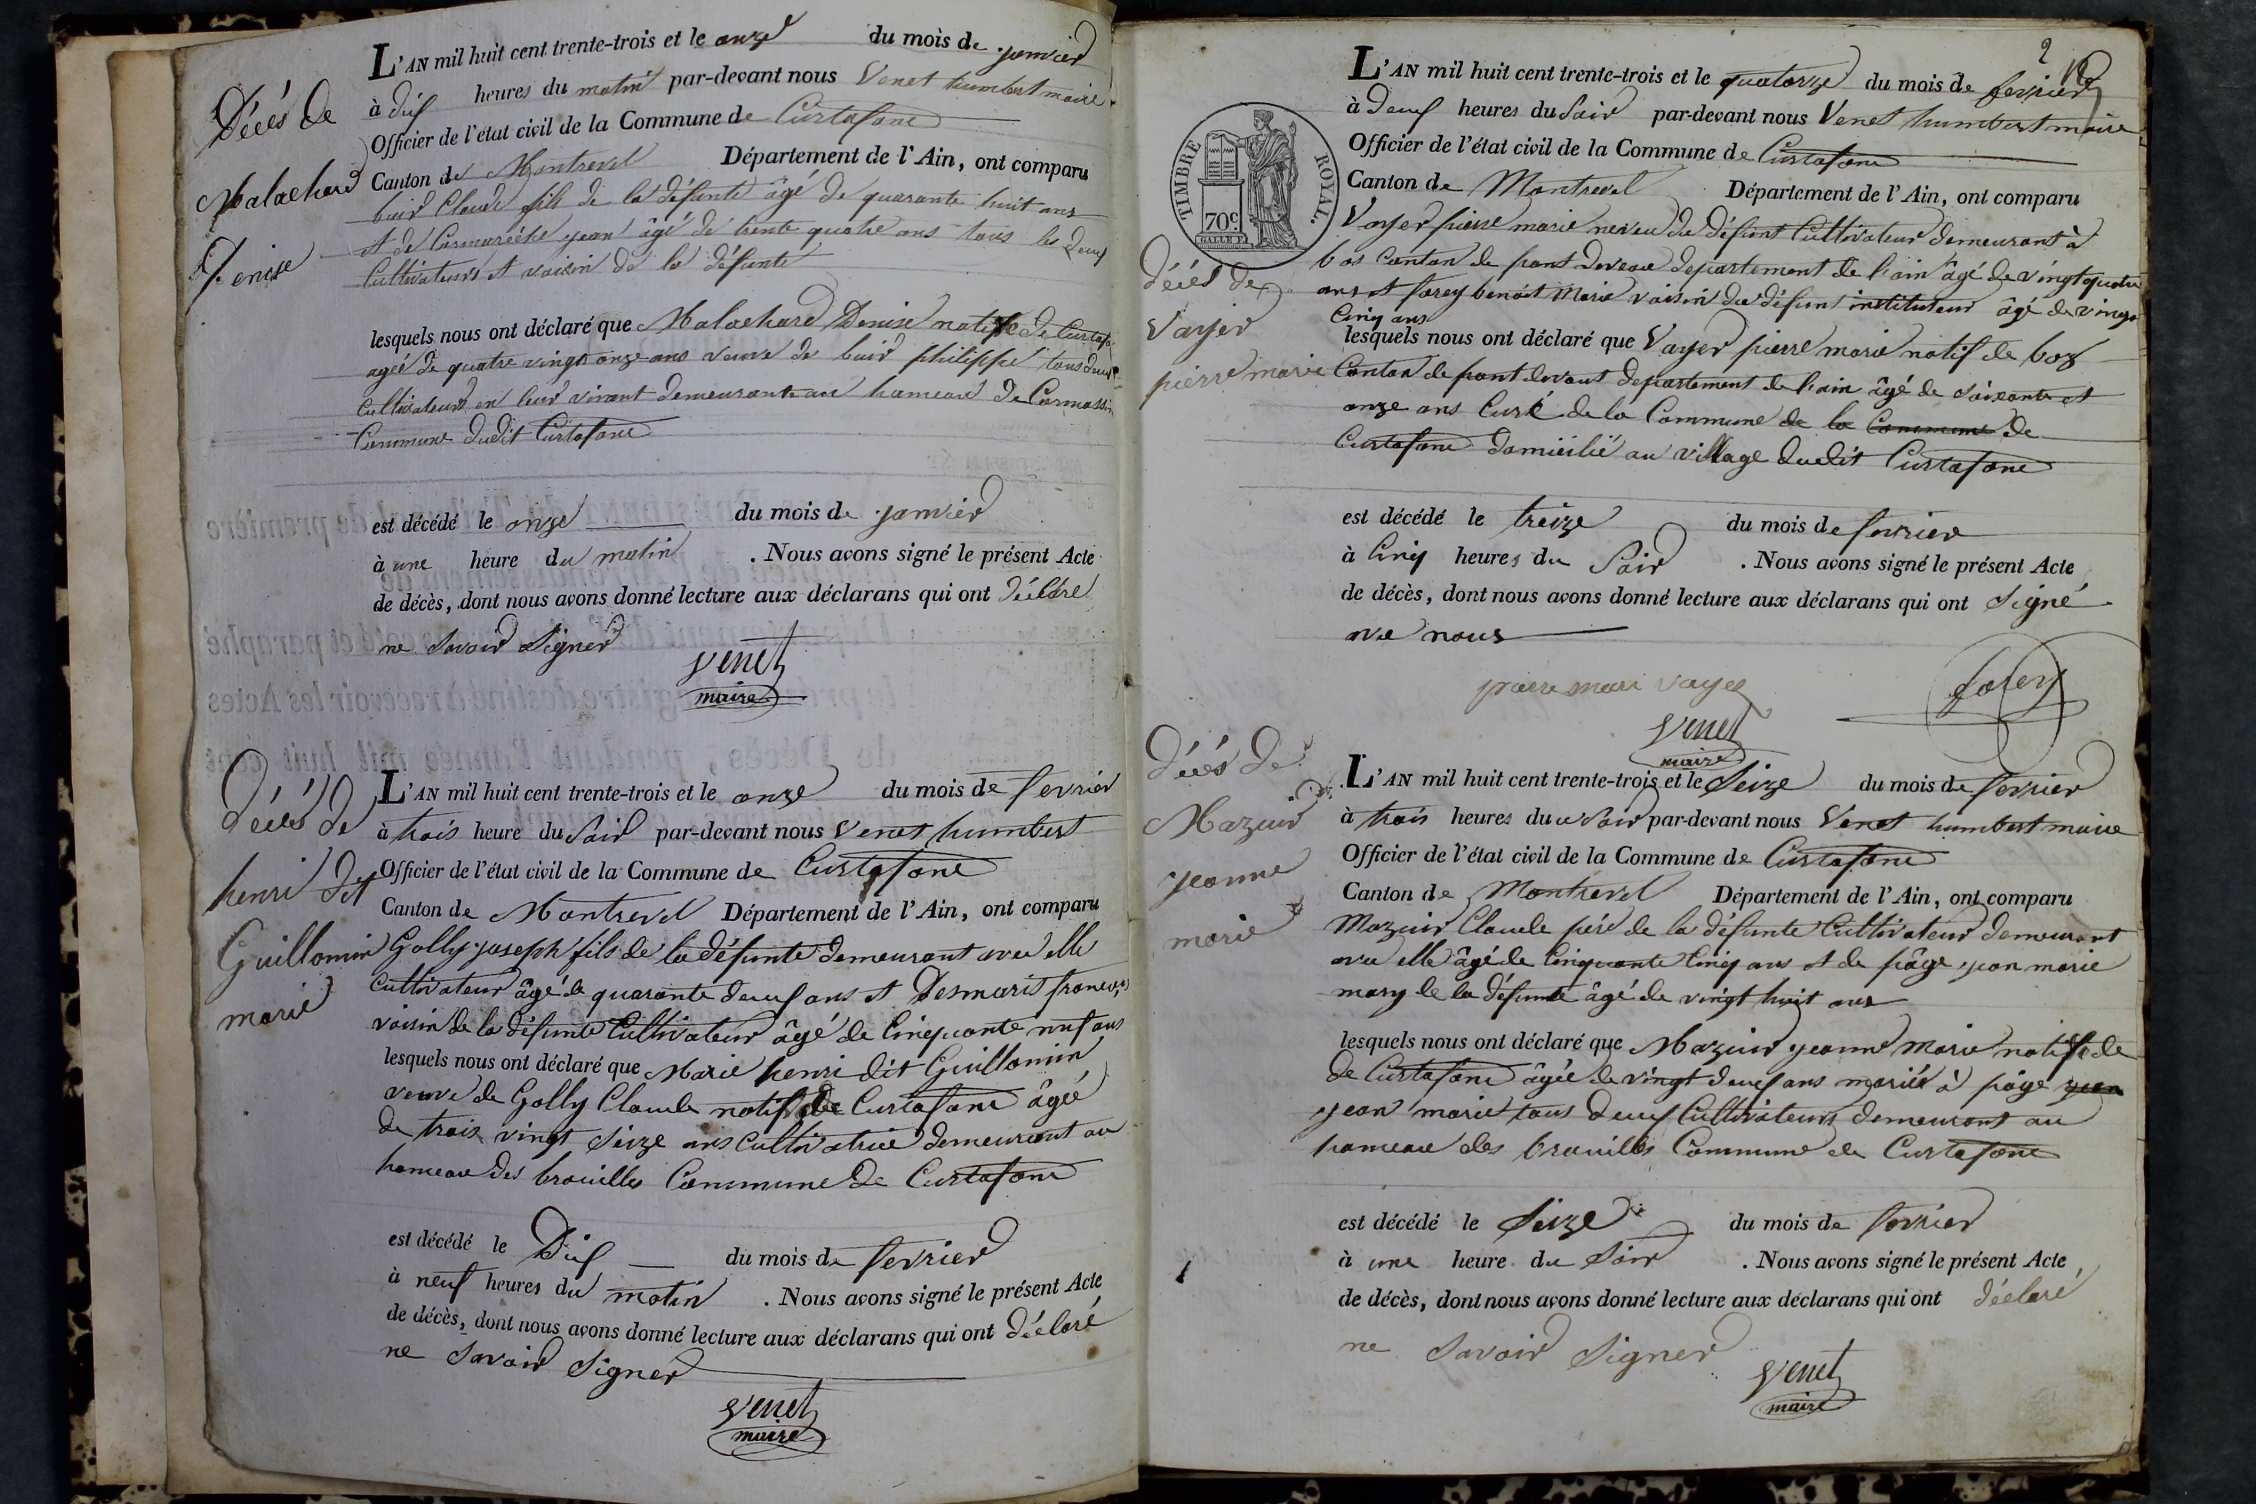 Décès de
Malachard
Denise
L'AN mil huit cent trente-trois et le onze du mois de janvier
à dix heures du matin par-devant nous Venet humbert maire
Officier de l'état civil de la Commune de Curtafond
Canton de Montrevel Département de l'Ain, ont comparu
buir Claude fils de la défunte âgé de quarante huit ans
et de Carmarêche jean âgé de trente quatre ans tous les deux
Cultivateurs et voisin de la défunte
lesquels nous ont déclaré que Malachard Denise native de Curtafo
agée de quatre vingt onze ans veuve de buir philippe tous deux
Cultivateurs en leur vivant demeurante au hameau de
Commune dudit Curtafond
est décédé le onze du mois de janvier
à une heure du matin . Nous avons signé le présent Acte
de décès, dont nous avons donné lecture aux déclarans qui ont déclaré
ne Savoir Signer
Venet
maire
décès de
henri dit
Guillomin
marie
L'AN mil huit cent trente-trois et le onze du mois de fevrier
à trois heure du Soir par-devant nous Venet humbert
Officier de l'état civil de la Commune de Curtafond
Canton de Montrevel Département de l'Ain, ont comparu
Golly joseph fils de la défunte demeurant avec elle
Cultivateur âgé de quarante deux ans et Desmaris francois
voisin de la défunte Cultivateur âgé de Cinquante neuf ans
lesquels nous ont déclaré que Marie henri dit Guillomin
veuve de Golly Claude native de Curtafond âgée
de trois vingt Seize ans Cultivatrice demeurant au
hameau des brouilles Commune de Curtafond
est décédé le Dix du mois de fevrier
à neuf heures du matin . Nous avons signé le présent Acte
de décès, dont nous avons donné lecture aux déclarans qui ont déclaré
ne Savoir Signer
Venet
maire
2
TIMBRE ROYAL.
70c.
décès de
Vayer
pierre marie
L'AN mil huit cent trente-trois et le quatorze du mois de fevrier
à deux heures du Soir par-devant nous Venet humbert maire
Officier de l'état civil de la Commune de Curtafond
Canton de Montrevel Département de l'Ain, ont comparu
Vayer pierre marie neveu du défunt Cultivateur demeurant à
bos Canton de pont deveau departement de l'ain âgé de vingt quatre
ans et farey benoit Marie voisin du défunt instituteur âgé de vingt
Cinq ans
lesquels nous ont déclaré que Vayer pierre marie natif de boz
Canton de pont devaut departement de l'ain âgé de Soixante et
onze ans Curé de la Commune de la Commune de
Curtafond domicilié au village dudit Curtafond
est décédé le treize du mois de fevrier
à Cinq heures du Soir . Nous avons signé le présent Acte
de décès, dont nous avons donné lecture aux déclarans qui ont Signé
avec nous
pierre mari vayer
farey
Venet
maire
décès de
Mazuir
jeanne
marie
L'AN mil huit cent trente-trois et le Seize du mois de fevrier
à trois heures du Soir par-devant nous Venet humbert maire
Officier de l'état civil de la Commune de Curtafond
Canton de Montrevel Département de l'Ain, ont comparu
Mazuir Claude père de la défunte Cultivateur demeurant
avec elle âgé de Cinquante Cinq ans et de pâge jean marie
mary de la défunte âgé de vingt huit ans
lesquels nous ont déclaré que Mazuir jeanne Marie native de
de Curtafond âgée de vingt deux ans mariée à pâge jean
jean marie tous deux Cultivateurs demeurant au
hameau des brouilles Commune de Curtafond
est décédé le Seize du mois de fevrier
à une heure du Soir . Nous avons signé le présent Acte
de décès, dont nous avons donné lecture aux déclarans qui ont déclaré
ne Savoir Signer
Venet
maire